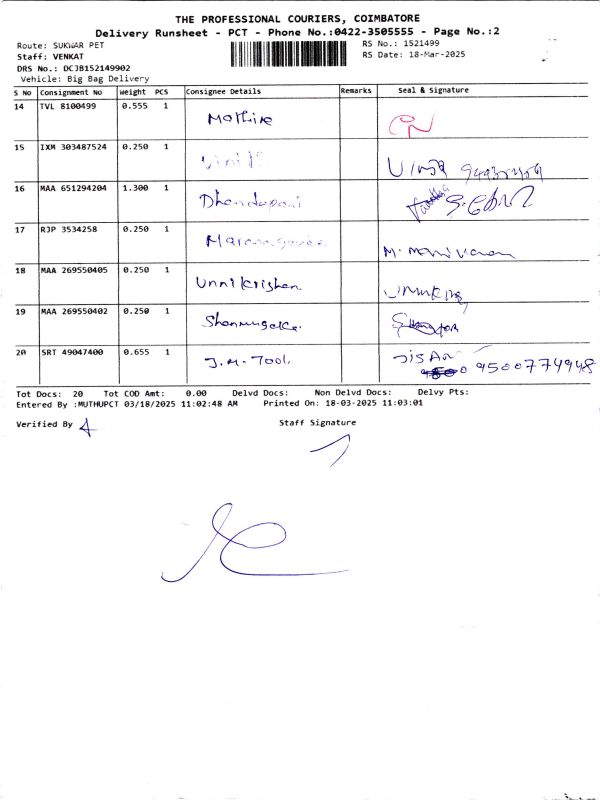 THE PROFESSIONAL COURIERS, COIMBATORE
Delivery Runsheet - PCT - Phone No.:0422-3505555 - Page No.:2
Route: SUKWAR PET RS No.: 1521499
Staff: VENKAT RS Date: 18-Mar-2025
DRS No.: DCJB152149902
Vehicle: Big Bag Delivery
S No Consignment No Weight PCS Consignee Details Remarks Seal & Signature
14 TVL 8100499 0.555 1
15 IXM 303487524 0.250 1
16 MAA 651294204 1.300 1 Dhandapani
17 RJP 3534258 0.250 1
18 MAA 269550405 0.250 1 Unnikrishan
19 MAA 269550402 0.250 1
20 SRT 49047400 0.655 1 J.M. Tool 9500774948
Tot Docs: 20 Tot COD Amt: 0.00 Delvd Docs: Non Delvd Docs: Delvy Pts:
Entered By :MUTHUPCT 03/18/2025 11:02:48 AM Printed On: 18-03-2025 11:03:01
Verified By Staff Signature